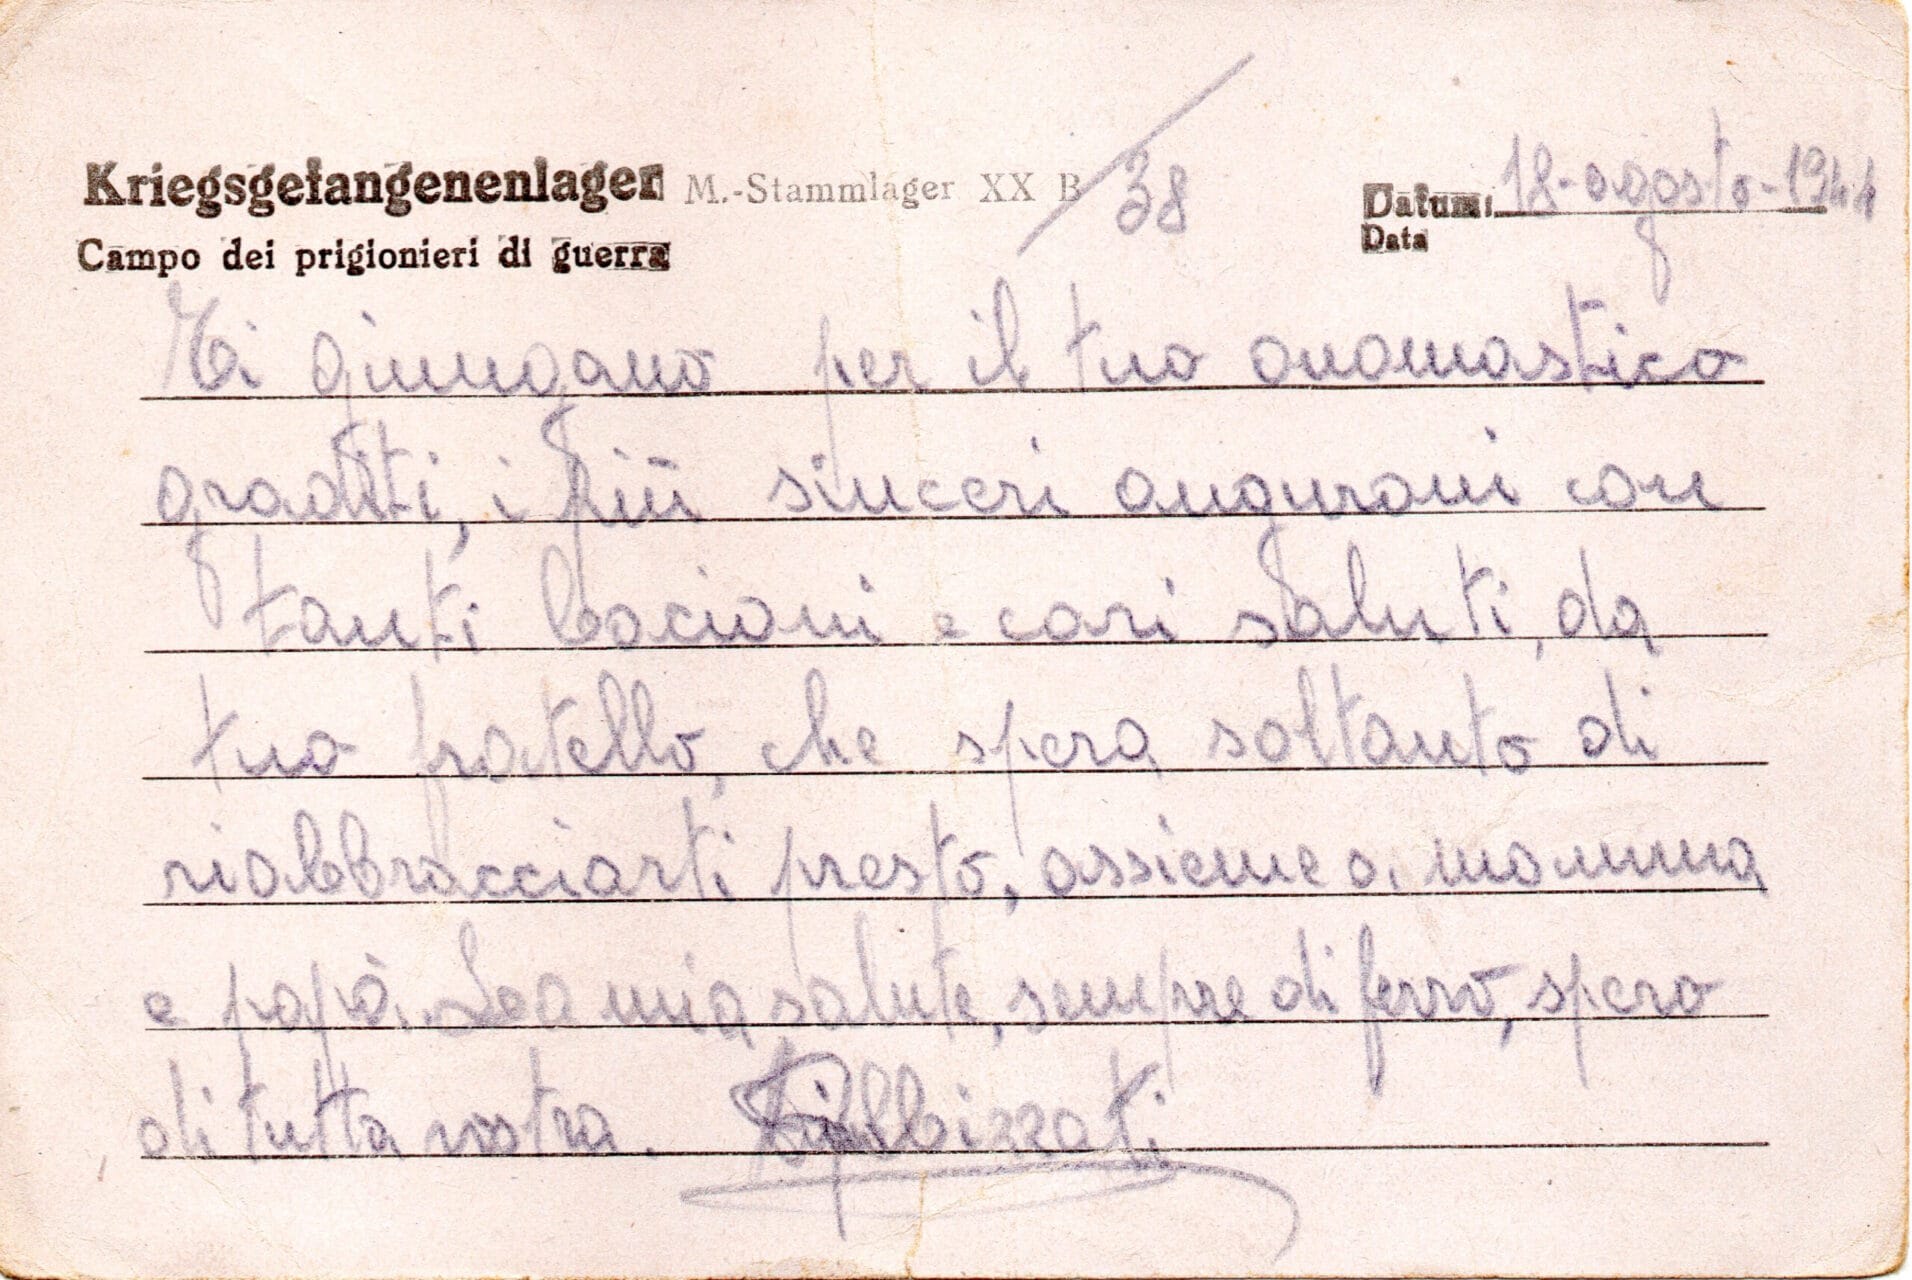 Kriegsgefangenenlager M.-Stammlager XX B / 38 Datum: 18-agosto-1944
Campo dei prigionieri di guerra Data
Ti giungano per il tuo onomastico
graditi, i più sinceri auguroni con
tanti bacioni e cari saluti, da
tuo fratello, che spera soltanto di
riabbracciarti presto, assieme a mamma
e papà. La mia salute, sempre di ferro, spero
di tutta vostra.